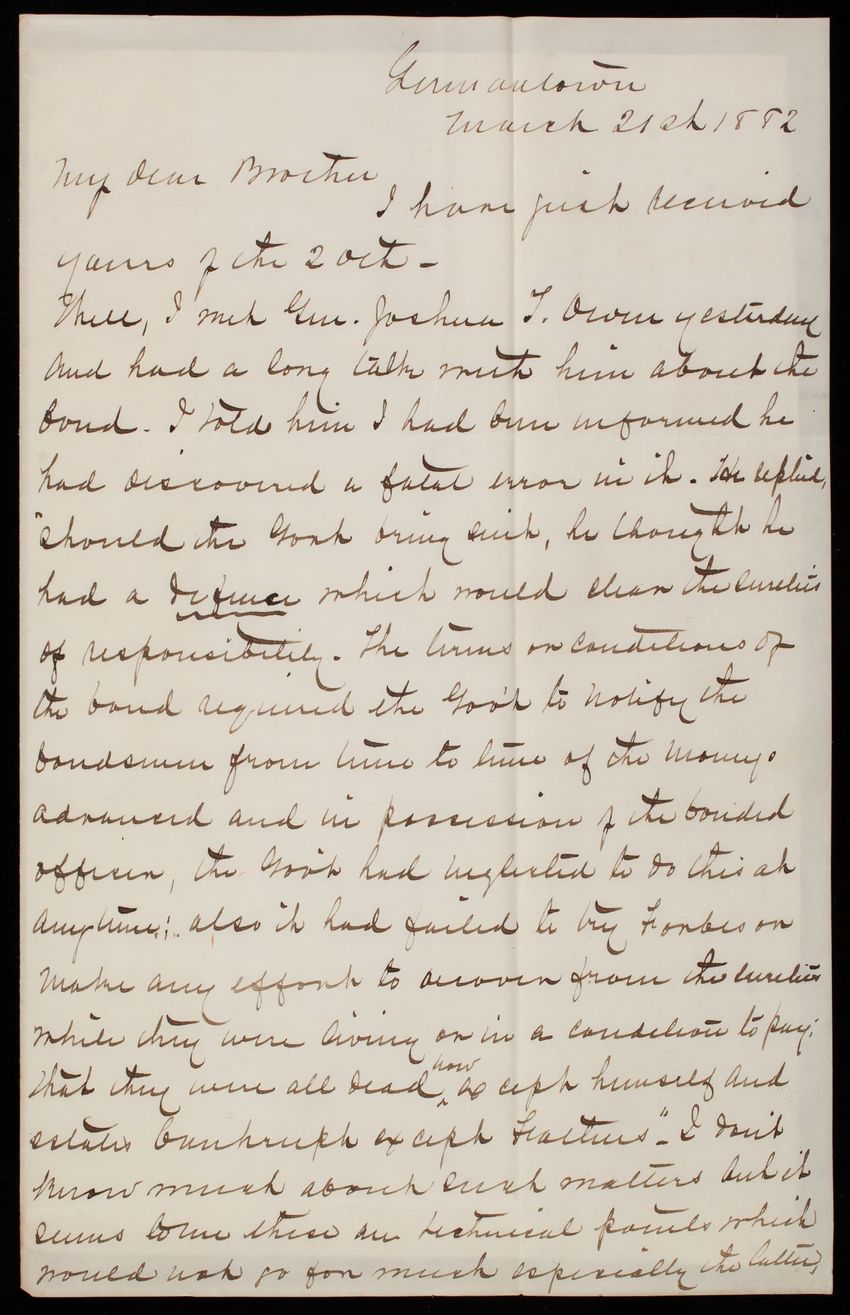 Germantown
March 21st 1882
My dear Brother
I have just received
yours of the 20th -
Well, I met Gen. Joshua T. Owen yesterday
and had a long talk with him about the
bond. I told him I had been informed he
had discovered a fatal error in it. He replied,
"should the Govt bring suit, he thought he
had a defence which would clear the sureties
of responsibility. The terms or conditions of
the bond required the Gov't to notify the
bondsmen from time to time of the moneys
advanced and in possession of the bonded
officer, the Gov't had neglected to do this at
anytime; also it had failed to try Forbes or
make any effort to recover from the sureties
while they were living or in a condition to pay;
that they were all dead now except himself and
estates bankrupt except Fathers". I don't
know much about such matters but it
seems to me these are technical points which
would not go for much especially the latter,